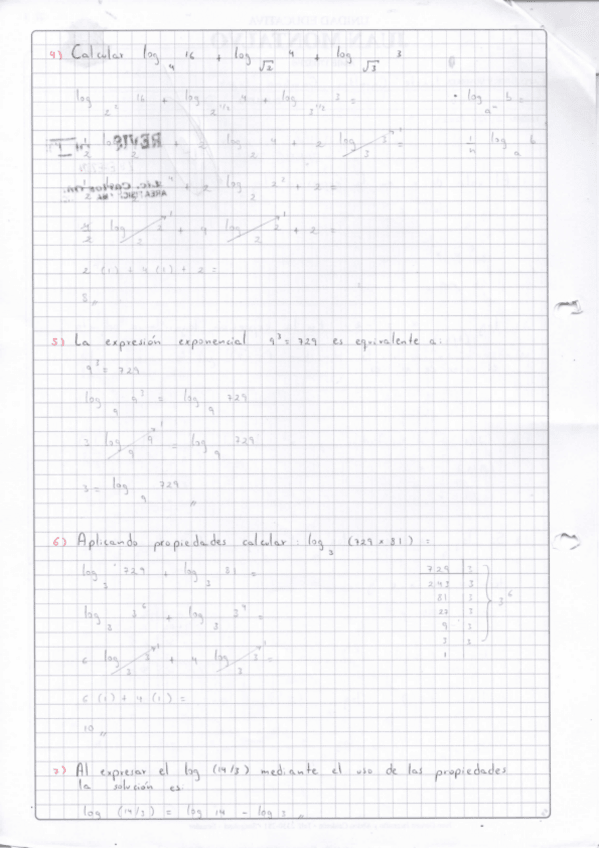 4) Calcular log₄ 16 + log_√2 4 + log_√3 3
log_2² 16 + log_2^1/2 4 + log_3^1/2 3 =
• log_aⁿ b =
1/2 log₂ + 2 log₂ 4 + 2 log₃ 3 ↗1 =
1/n log_a b
REVIS
Lic. Carlos
+ 2 log₂ 2² + 2 =
4/2 log₂ 2 ↗1 + 4 log₂ 2 ↗1 + 2 =
2 (1) + 4 (1) + 2 =
8 //
5) La expresión exponencial 9³ = 729 es equivalente a:
9³ = 729
log₉ 9³ = log₉ 729
3 log₉ 9 ↗1 = log₉ 729
3 = log₉ 729 //
6) Aplicando propiedades calcular: log₃ (729 x 81) =
log₃ 729 + log₃ 81 =
729 | 3
243 | 3
81 | 3
27 | 3
9 | 3
3 | 3
1
3⁶
log₃ 3⁶ + log₃ 3⁴ =
6 log₃ 3 ↗1 + 4 log₃ 3 ↗1 =
6 (1) + 4 (1) =
10 //
7) Al expresar el log (14/3) mediante el uso de las propiedades
la solución es:
log (14/3) = log 14 - log 3 //